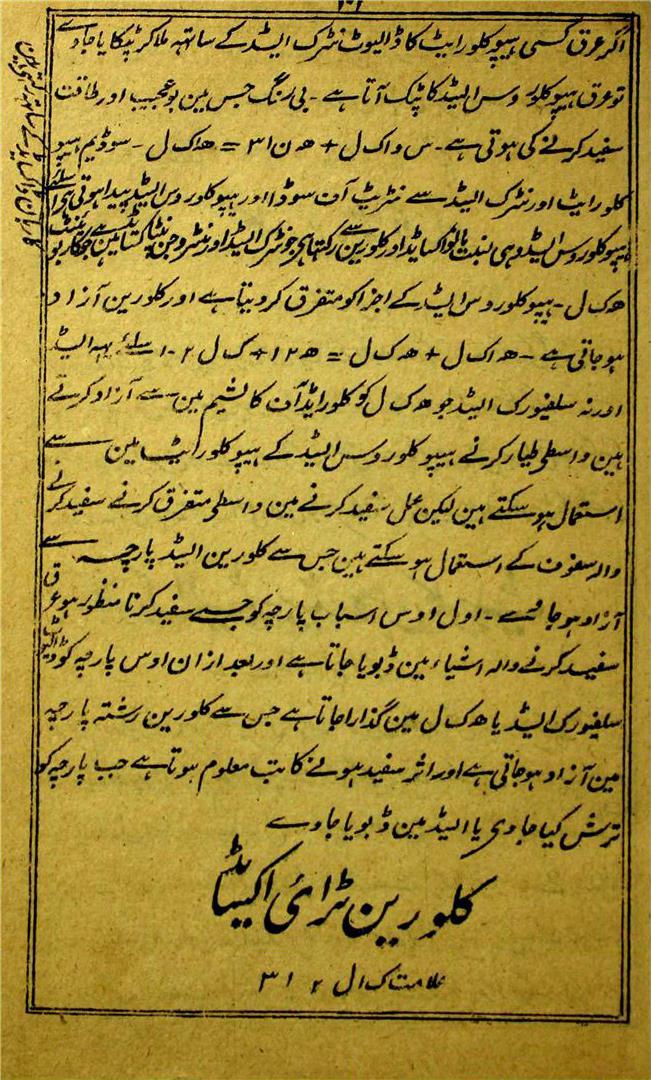 اگر عرق کسی ہیپو کلورایٹ کا ڈالیوٹ نٹرک ایسڈ کے ساتہہ ملا کر ٹپکایا جاوے
تو عرق ہیپو کلور وس ایسڈ کا ٹپک آتا ہے - بی رنگ جس مین بو عجیب اور طاقت
سفید کرنے کی ہوتی ہے - س و ا ک ل + ھ ن ا ۳ = ھ ا ک ل - سوڈیم ہیپو
کلورایٹ اور نٹرک ایسڈ سے نٹریٹ آف سوڈا اور ہیپو کلوروس ایسڈ پیدا ہوتی ہی
ہیپو کلوروس ایسڈ وہی نسبت اکسایڈ اور کلورین سے رکہتا ہی جو نٹرک ایسڈ اور نٹروجن
ھ ک ل - ہیپو کلوروس ایسڈ کے اجزا کو متفرق کر دیتا ہے اور کلورین آزاد
ہو جاتی ہے - ھ ا ک ل + ھ ک ل = ھ ۲ ا + ک ل ۲ - اسلئے یہہ ایسڈ
اور نہ سلفیورک ایسڈ جو ھ ک ل کو کلورایڈ آف کالشیم مین سے آزاد کرتے
ہین واسطی طیار کرنے ہیپو کلوروس ایسڈ کے ہیپو کلورایٹ مین سے
استعمال ہو سکتے ہین لیکن عمل سفید کرنے مین واسطی متفرق کرنے سفید کرنے
والہ سفوف کے استعمال ہو سکتے ہین جس سے کلورین ایسڈ پارچہ سے
آزاد ہو جائے - اول اوس اسباب پارچہ کو جسے سفید کرنا منظور ہو عرق
سفید کرنے والہ اشیاء مین ڈبویا جاتا ہے اور بعد ازان اوس پارچہ کو ڈالیوٹ
سلفیورک ایسڈ یا ھ ک ل مین گذارا جاتا ہے جس سے کلورین رشتہ پارچہ
مین آزاد ہو جاتی ہے اور اثر سفید ہونے کا تب معلوم ہوتا ہے جب پارچہ کو
ترش کیا جاوی یا ایسڈ مین ڈبویا جاوے
کلورین ٹرائی اکسائڈ
علامت ک ال ۲ ا ۳